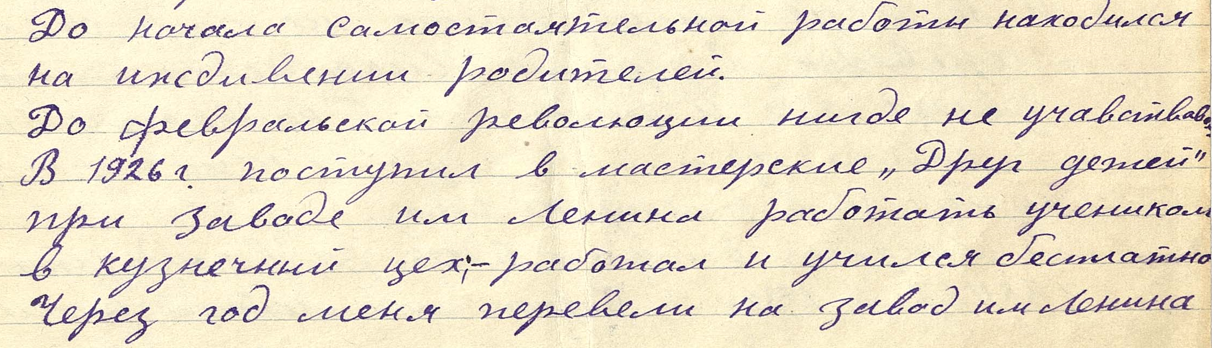 До начала самостоятельной работы находился
на иждивении родителей.
До февральской революции нигде не учавствовал
В 1926 г. поступил в мастерские „Друг детей"
при заводе им Ленина работать учеником
в кузнечный цех, – работал и учился бесплатно
Через год меня перевели на завод им Ленина